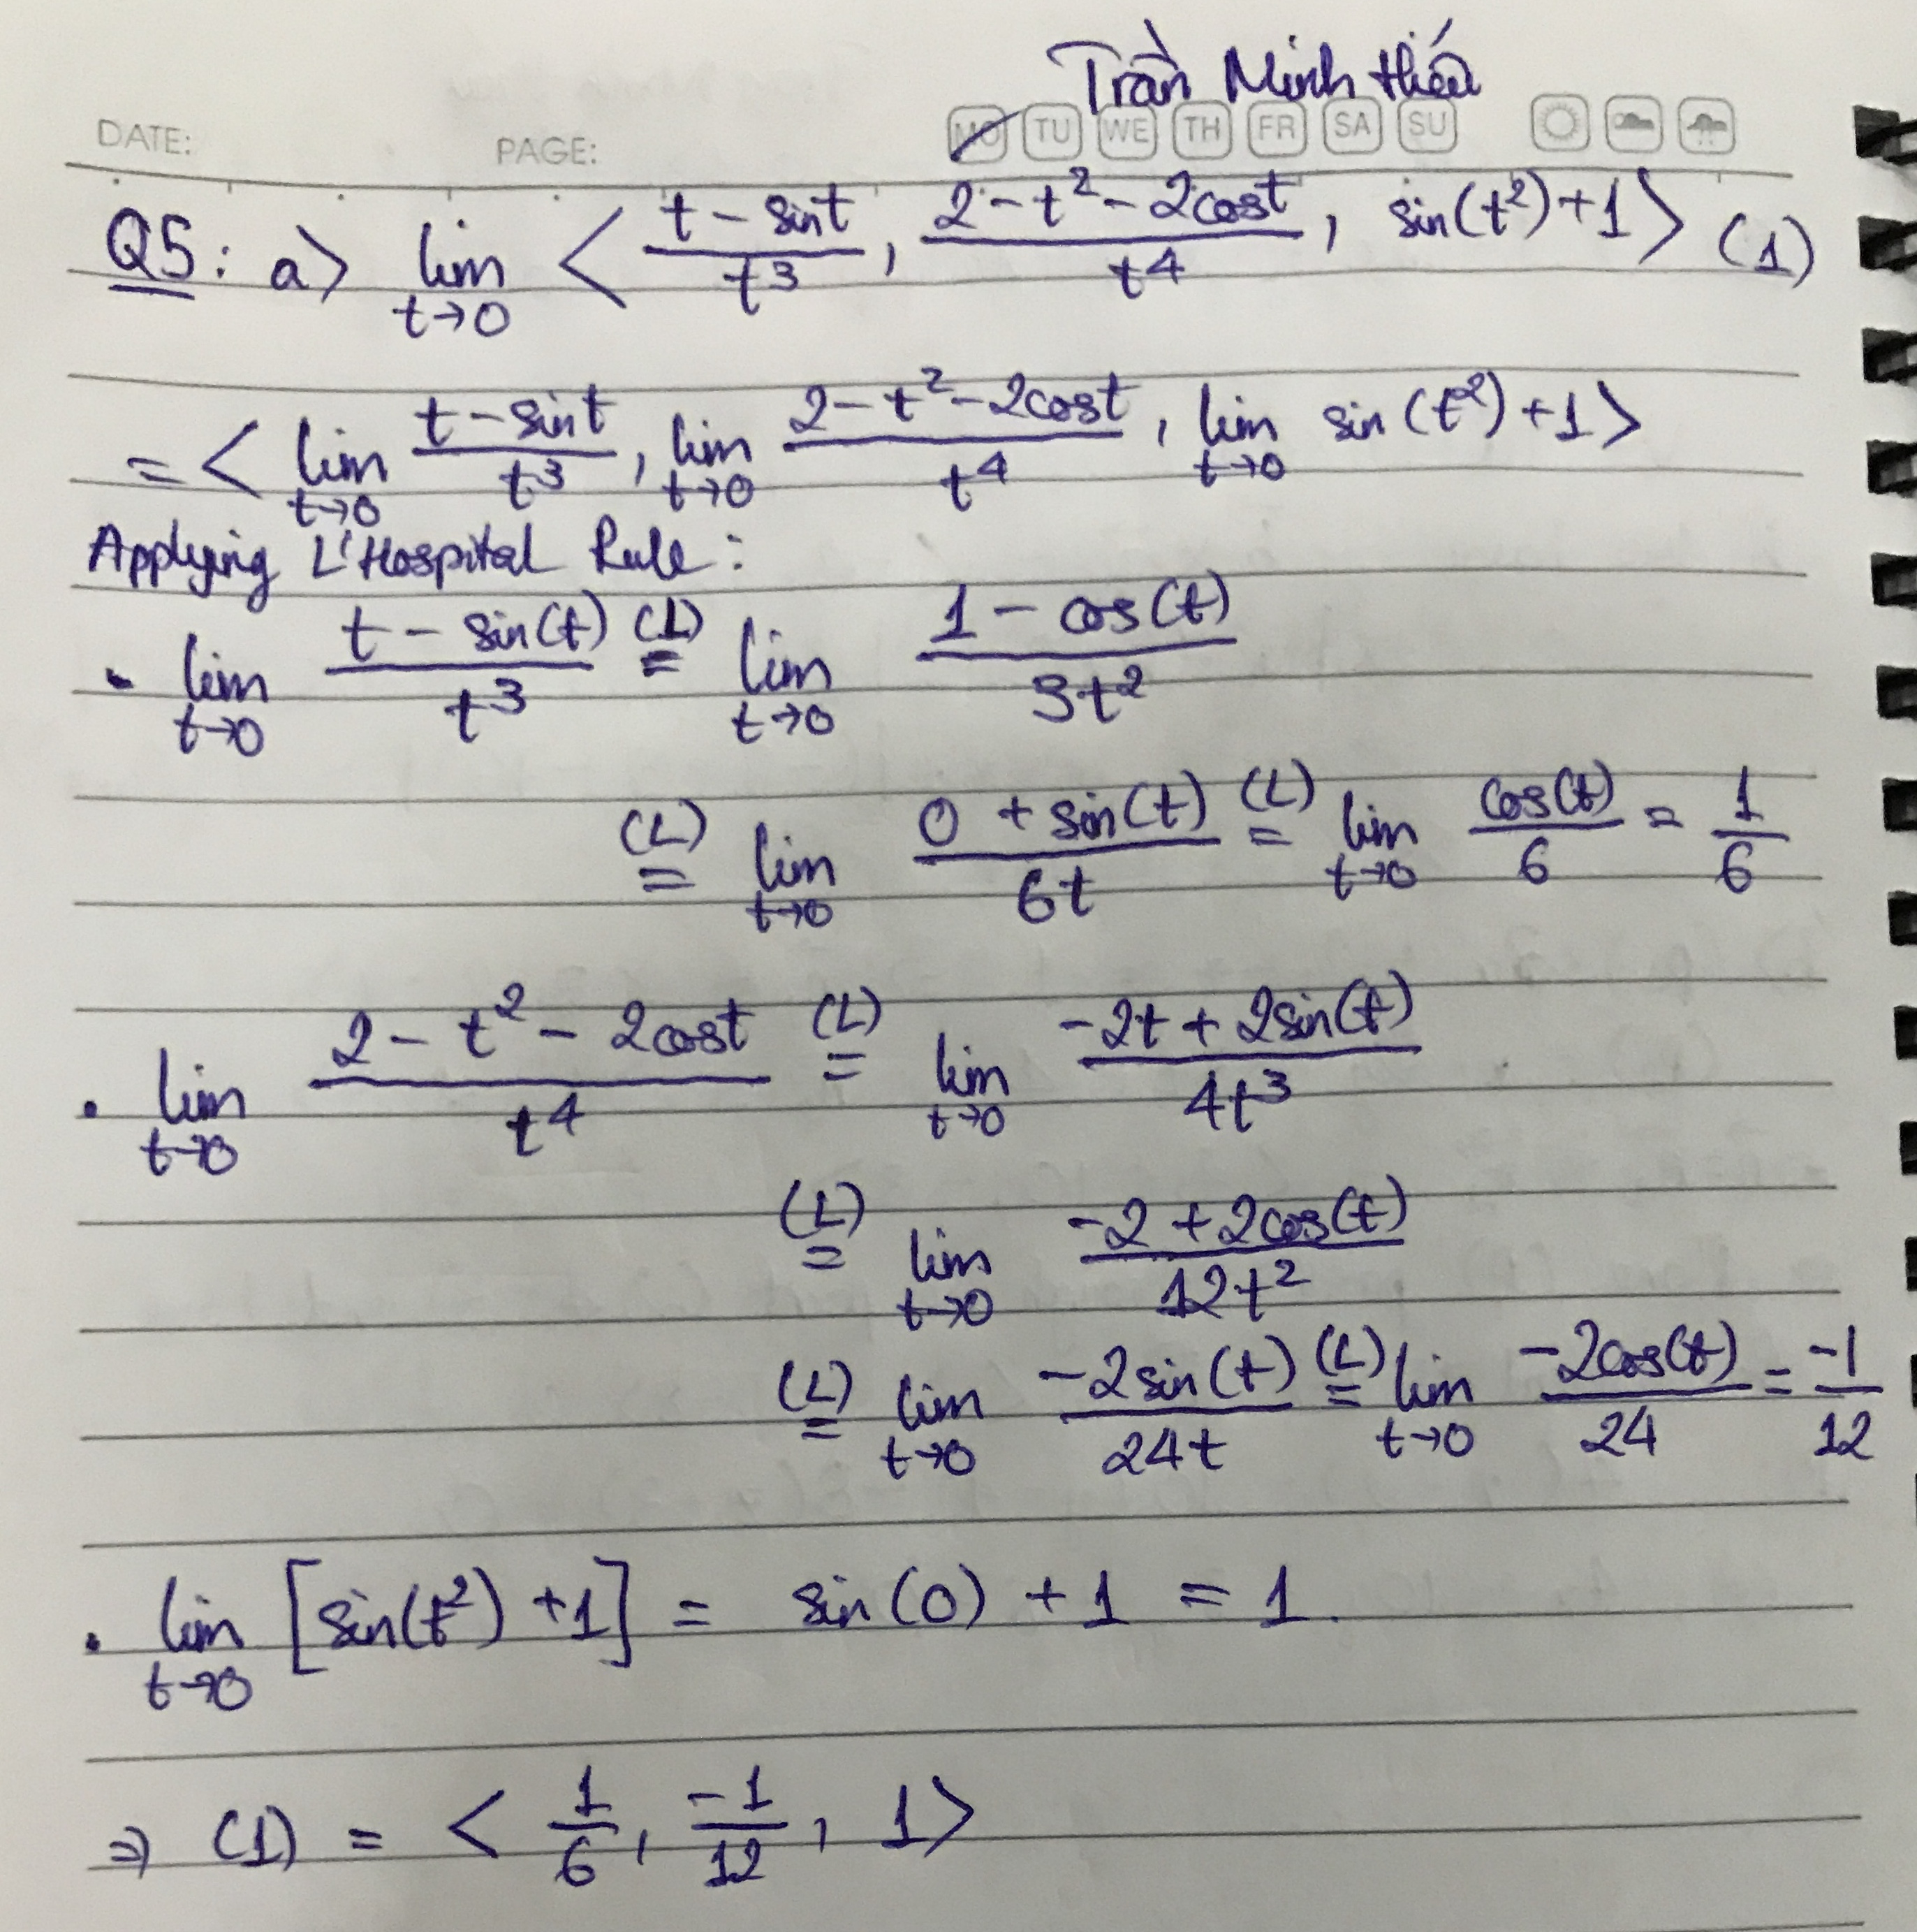 Trần Minh Hiếu
DATE: PAGE: MO TU WE TH FR SA SU
Q5: a> lim t→0 < (t - sint)/t³, (2 - t² - 2cost)/t⁴, sin(t²)+1 > (1)
= < lim t→0 (t - sint)/t³, lim t→0 (2 - t² - 2cost)/t⁴, lim t→0 sin(t²)+1 >
Applying L'Hospital Rule:
• lim t→0 (t - sin(t))/t³ (L)= lim t→0 (1 - cos(t))/3t²
(L)= lim t→0 (0 + sin(t))/6t (L)= lim t→0 cos(t)/6 = 1/6
• lim t→0 (2 - t² - 2cost)/t⁴ (L)= lim t→0 (-2t + 2sin(t))/4t³
(L)= lim t→0 (-2 + 2cos(t))/12t²
(L)= lim t→0 -2sin(t)/24t (L)= lim t→0 -2cos(t)/24 = -1/12
• lim t→0 [sin(t²) + 1] = sin(0) + 1 = 1.
⇒ (1) = < 1/6, -1/12, 1 >